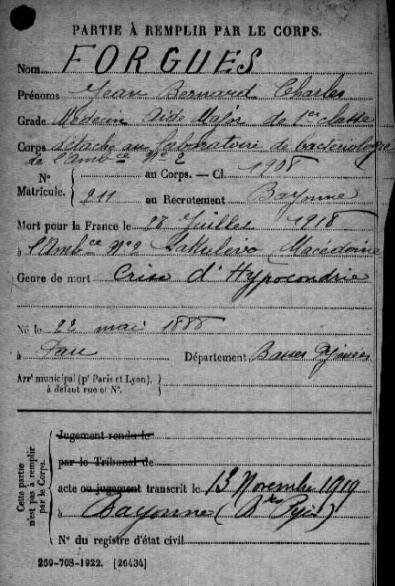 PARTIE À REMPLIR PAR LE CORPS.
Nom FORGUES
Prénoms Jean Bernard Charles
Grade Médecin Aide Major de 1ère classe
Corps détaché au laboratoire de bactériologie
de l'Ambce N° 2
N° Matricule. { au Corps. — Cl. 1908
211 au Recrutement Bayonne
Mort pour la France le 28 Juillet 1918
à l'Ambce N° 2 Macédoine
Genre de mort Crise d'Hypocondrie
Né le 22 mai 1888
à Pau Département Basses Pyrénées
Arrt municipal (pr Paris et Lyon),
à défaut rue et N°.
Cette partie n'est pas à remplir par le Corps.
Jugement rendu le
par le Tribunal de
acte ou jugement transcrit le 13 Novembre 1919
à Bayonne (Bses Pyr.)
N° du registre d'état civil
260-708-1922. [26434]